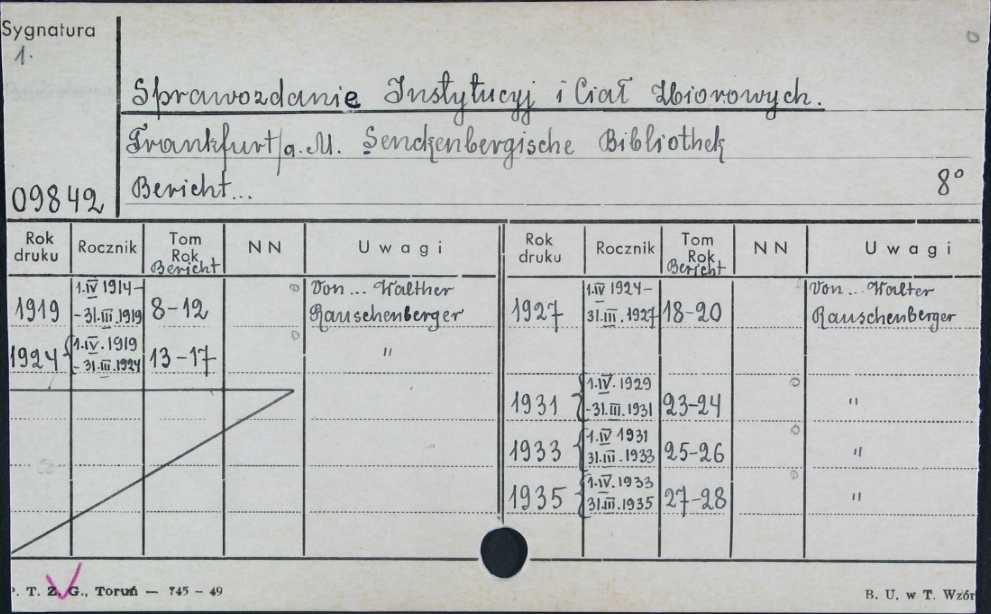 Sygnatura
1.
Sprawozdanie Instytucyj i Ciał Zbiorowych.
Frankfurt/a.M. Senckenbergische Bibliothek
09842 Bericht... 8°
Rok druku Rocznik Tom Rok Bericht N N Uwagi
1919 1.IV 1914 - - 31.III.1919 8-12 Von ... Walther Rauschenberger
1924 1.IV.1919 - 31.III.1924 13-17 "
Rok druku Rocznik Tom Rok Bericht N N Uwagi
1927 1.IV 1924 - 31.III.1927 18-20 Von ... Walter Rauschenberger
1931 1.IV.1929 - 31.III.1931 23-24 "
1933 1.IV 1931 31.III.1933 25-26 "
1935 1.IV.1933 31.III.1935 27-28 "
. T. Z. G., Toruń — 745 - 49
B. U. w T. Wzór